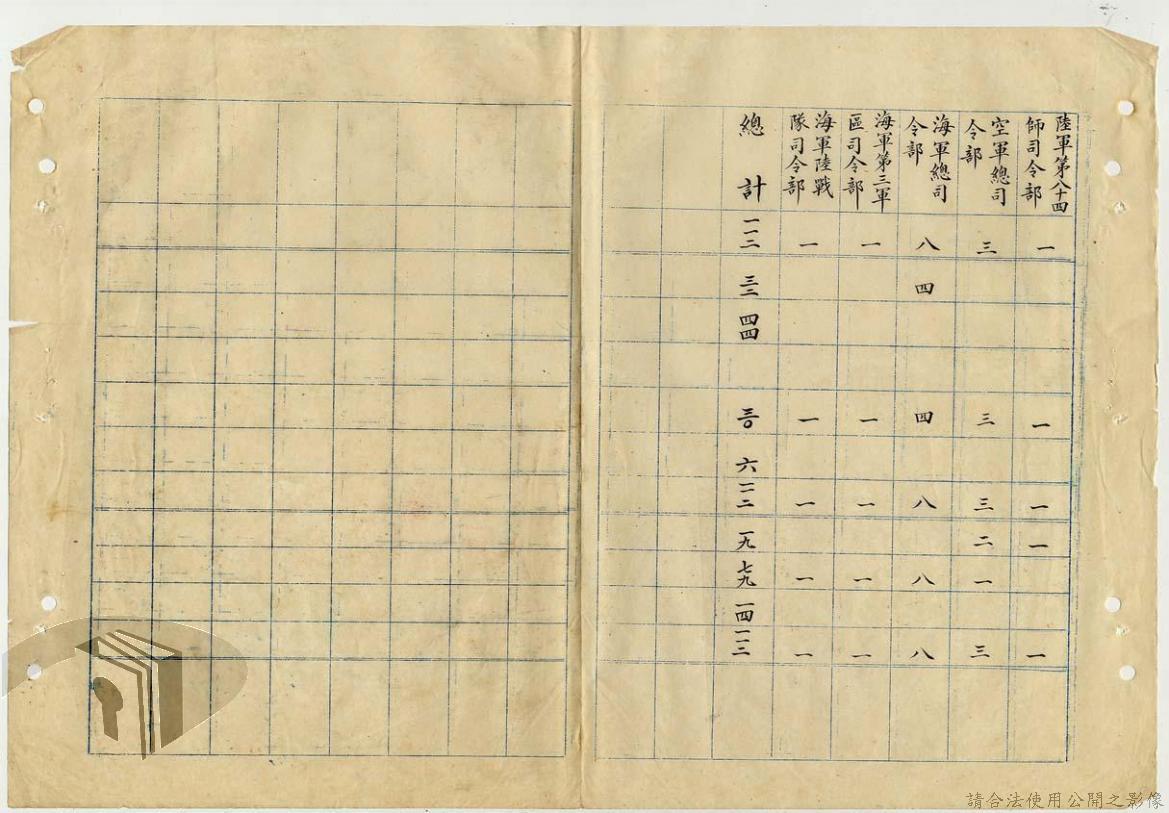 陸軍第八十四
師司令部
一
一
一
一
一
空軍總司
令部
三
三
三
二
一
三
海軍總司
令部
八
四
四
八
八
八
海軍第三軍
區司令部
一
一
一
一
一
海軍陸戰
隊司令部
一
一
一
一
一
總計
一一二
三二
四四
三〇
六
一一二
一九
七九
一四
一一二
請合法使用公開之影像